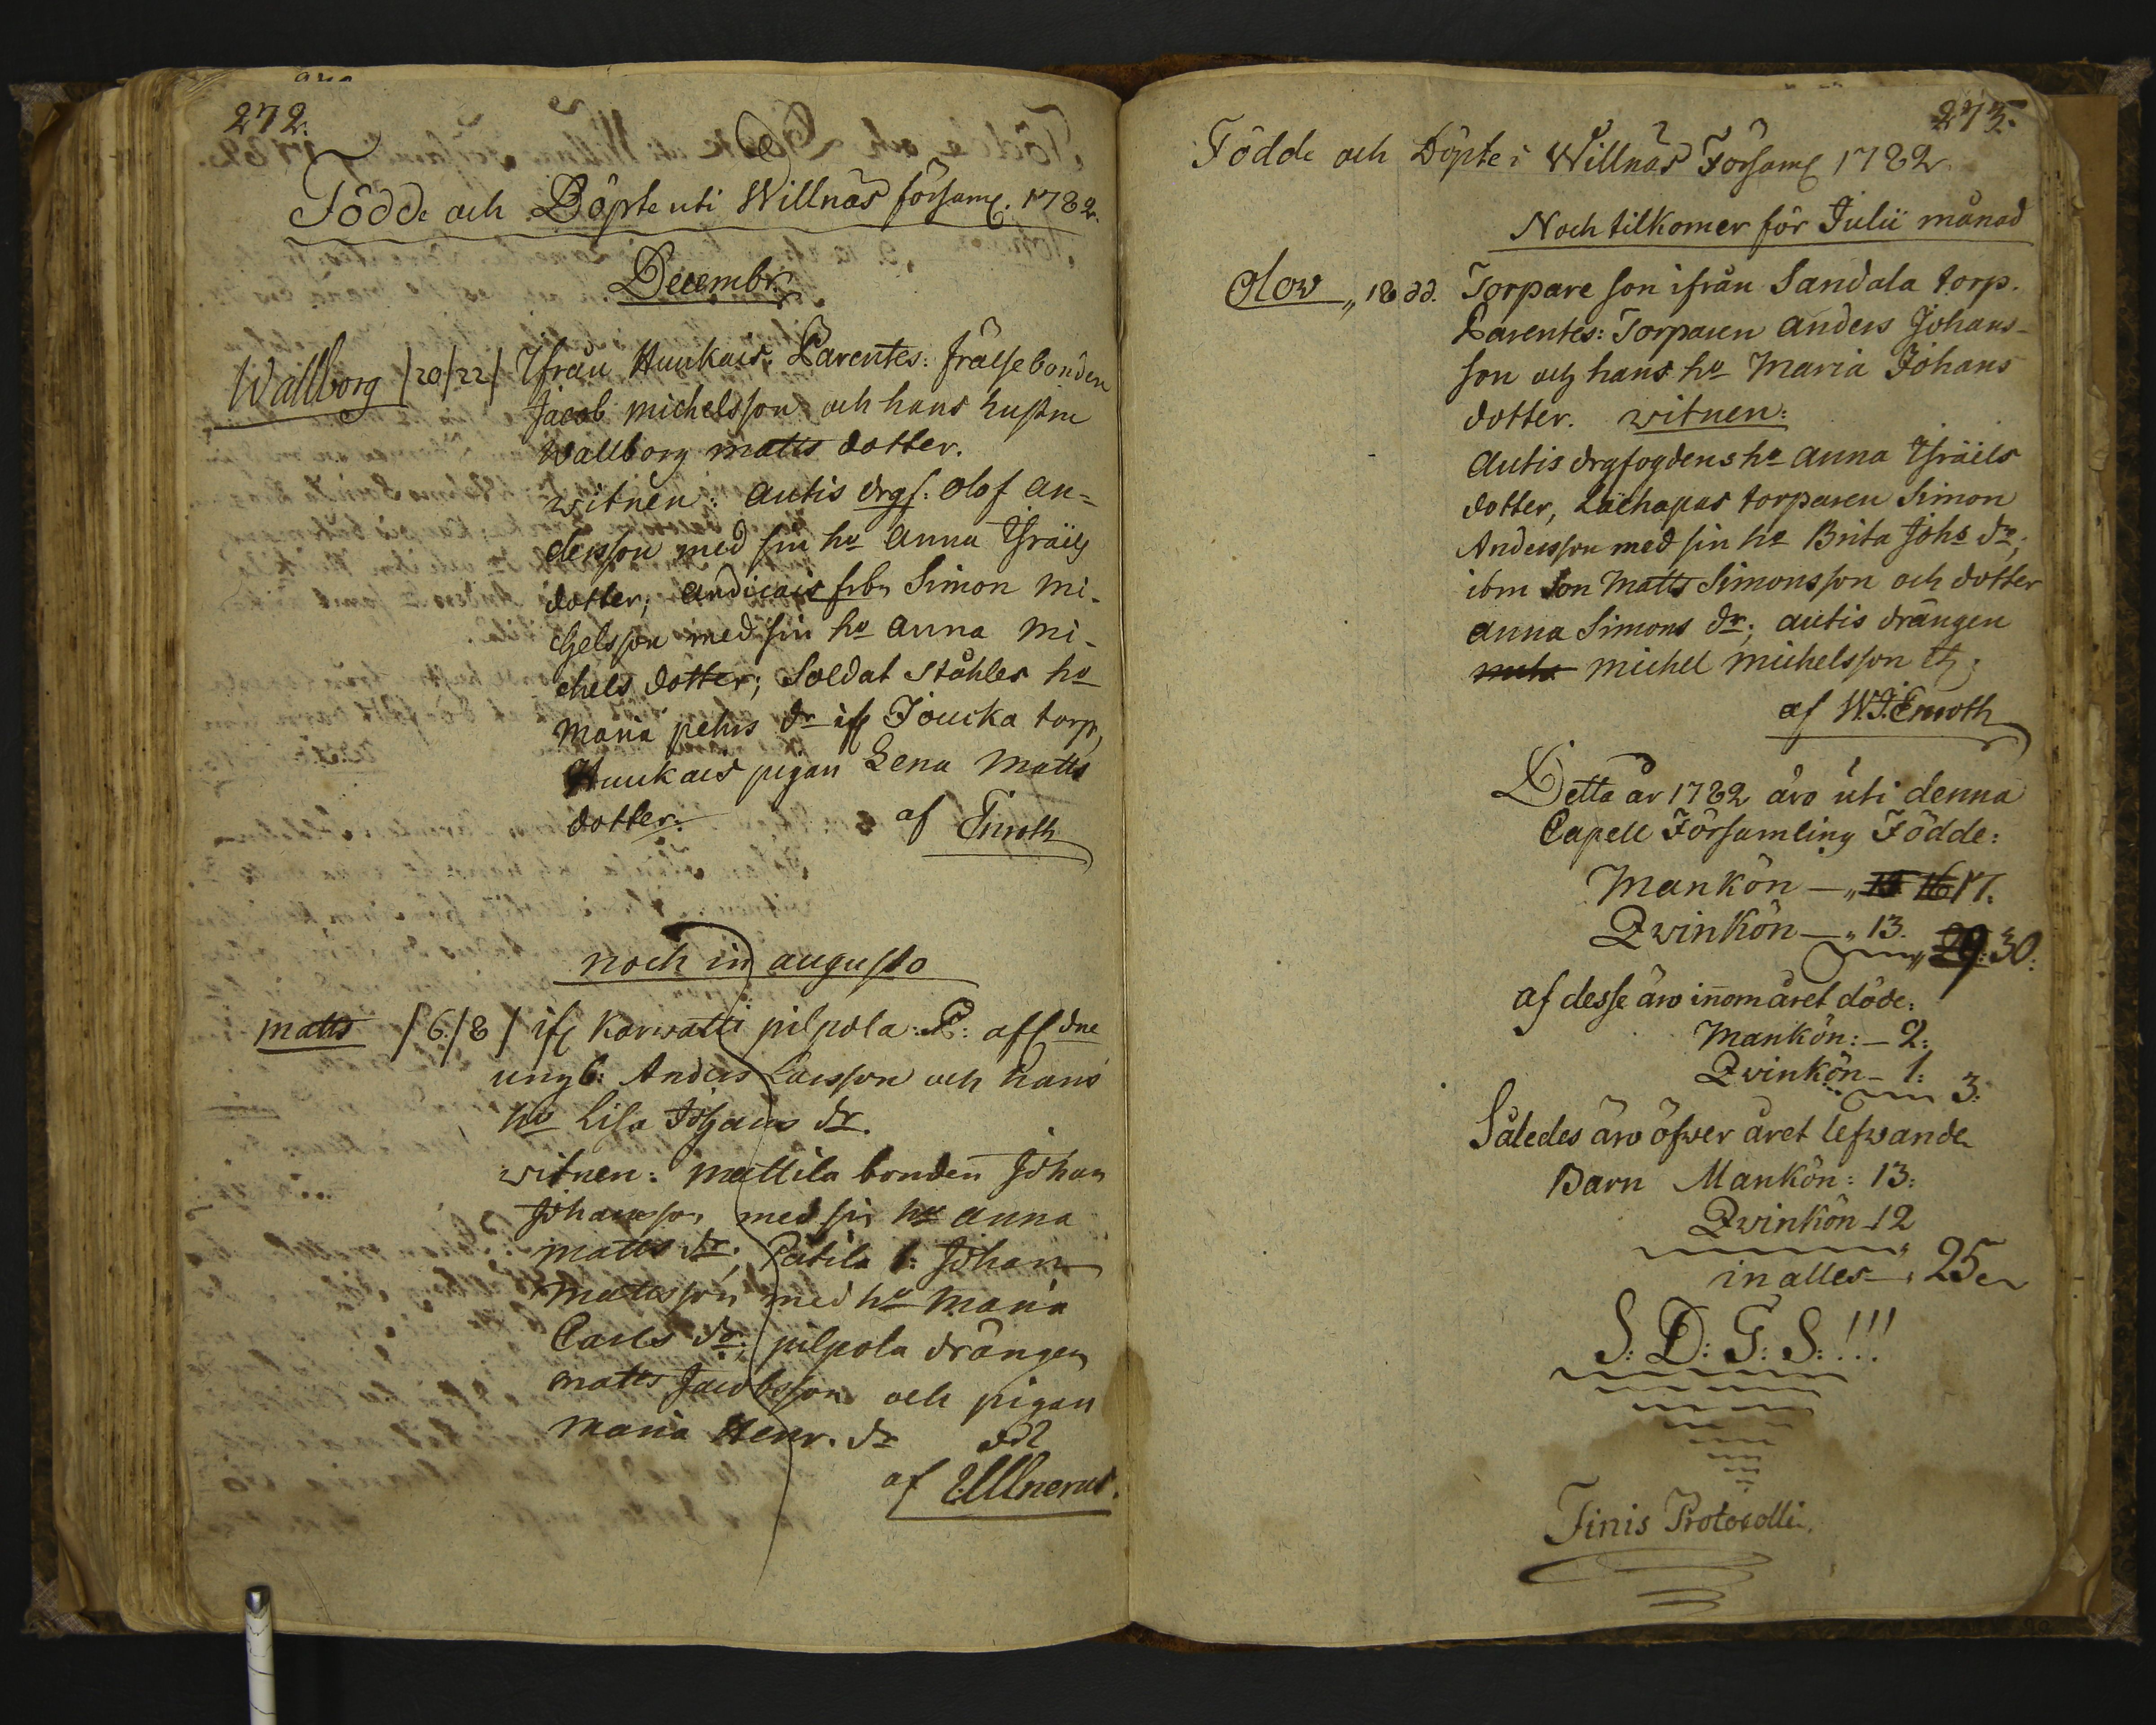 272.
Födde och Döpte uti Willnäs församl. 1782.
Decembr.
Wallborg /20/22/ Ifrån Hunkais. Parentes: frälsebonden
Jacob Michelsson och hans hustru
Wallborg Matts dotter.
witnen: Autis drgf: Olof An=
dersson med sin ho Anna Israels
dotter; Andicais frb. Simon Mi-
chelsson med sin ho Anna Mi-
chels dotter; Soldat Ståhles ho
Maria pehrs dr ifr Joucka torp,
Hunkais pigan Lena Matts
dotter.
af Enroth
noch in augusto
Matts /6/8/ ifr Karwatti pilpola. P: affl dne
ungb: Anders Larsson och hans
ho Lisa Johans dr.
witnen: Mattila bonden Johan
Johansson med sin ho Anna
Matts dr; Patila b: Johan
Mattsson med ho Maria
Carls dr; pilpola drängen
Matts Jacobsson och pigan
Maria Henr. dr
af Ullnerus.
273.
Födde och Döpte i Willnäs Församl 1782
Noch tilkomer för Julii månad
Olow „ 18 dd. Torpare son ifrån Sandala torp.
Parentes: Torparen Anders Johans-
son och hans ho Maria Johans
dotter. witnen:
Autis drgfogdens ho Anna Israels
dotter, torparen Simon
Andersson med sin ho Brita Johs dr;
ibm son Matts Simonsson och dotter
Anna Simons dr; Autis drängen
Michel Michelsson
af W.J. Enroth
Detta år 1782 äro uti denna
Capell Församling Födde:
Mankön — „ 16 17.
Qvinkön — „ 13.
29: 30:
af desse äro inom året döde:
Mankön: — 2:
Qvinkön — 1:
3:
Således äro öfwer året lefwande
Barn Mankön: 13:
Qvinkön 12
in alles — 25
S: D: G: S: !!!
Finis Protocolli.